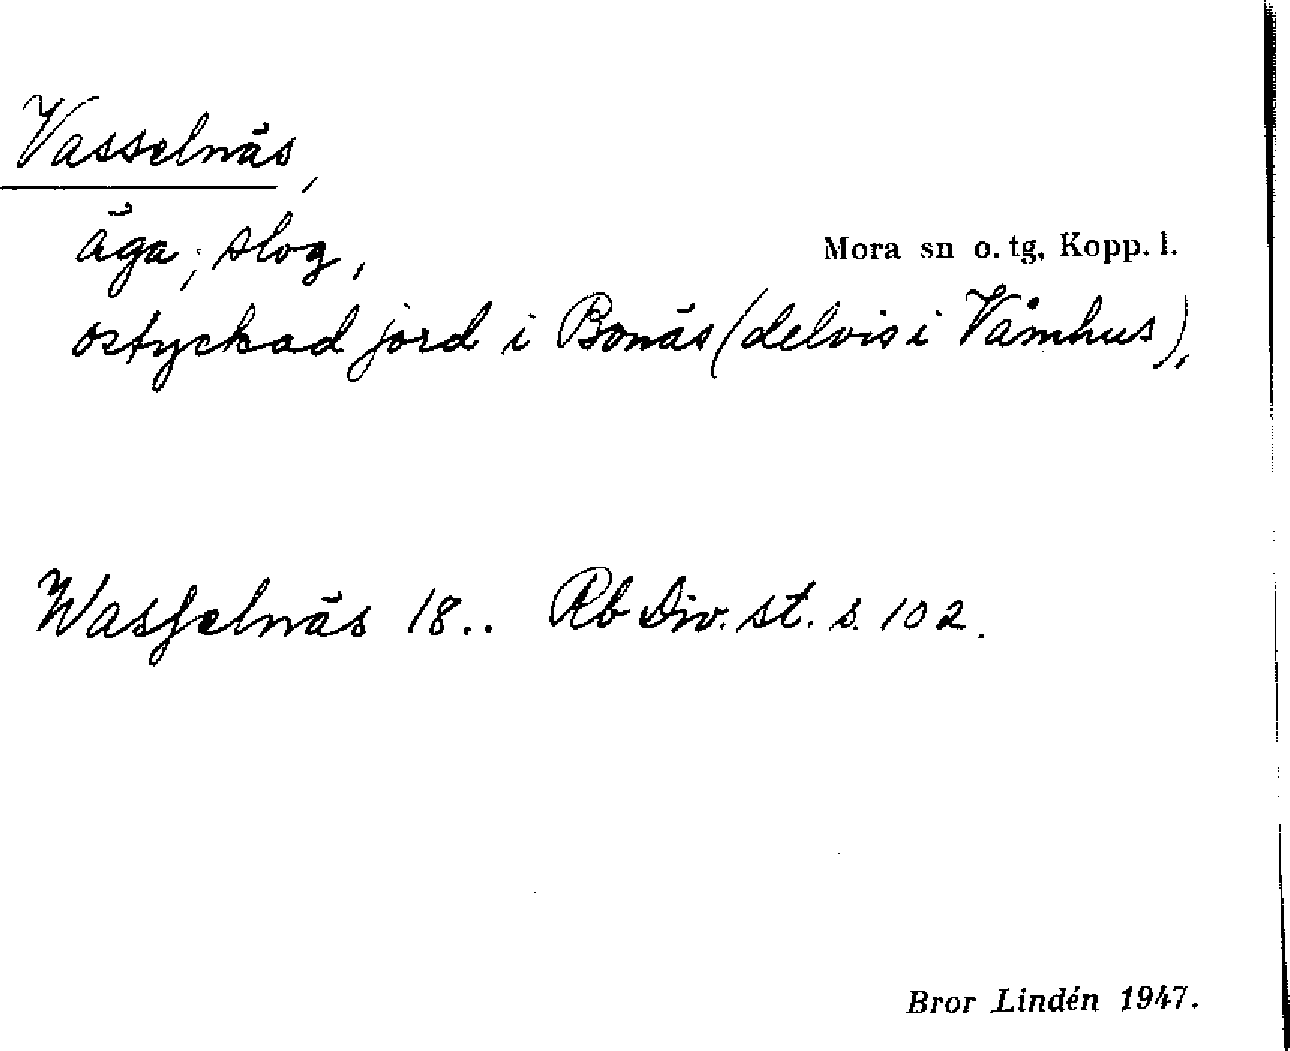 Vasselnäs,
äga; slog,
Mora sn o. tg, Kopp. l.
ostyckad jord i Bonäs (delvis i Våmhus),
Wasſelnäs 18.. Rb Div. st. s. 102.
Bror Lindén 1947.